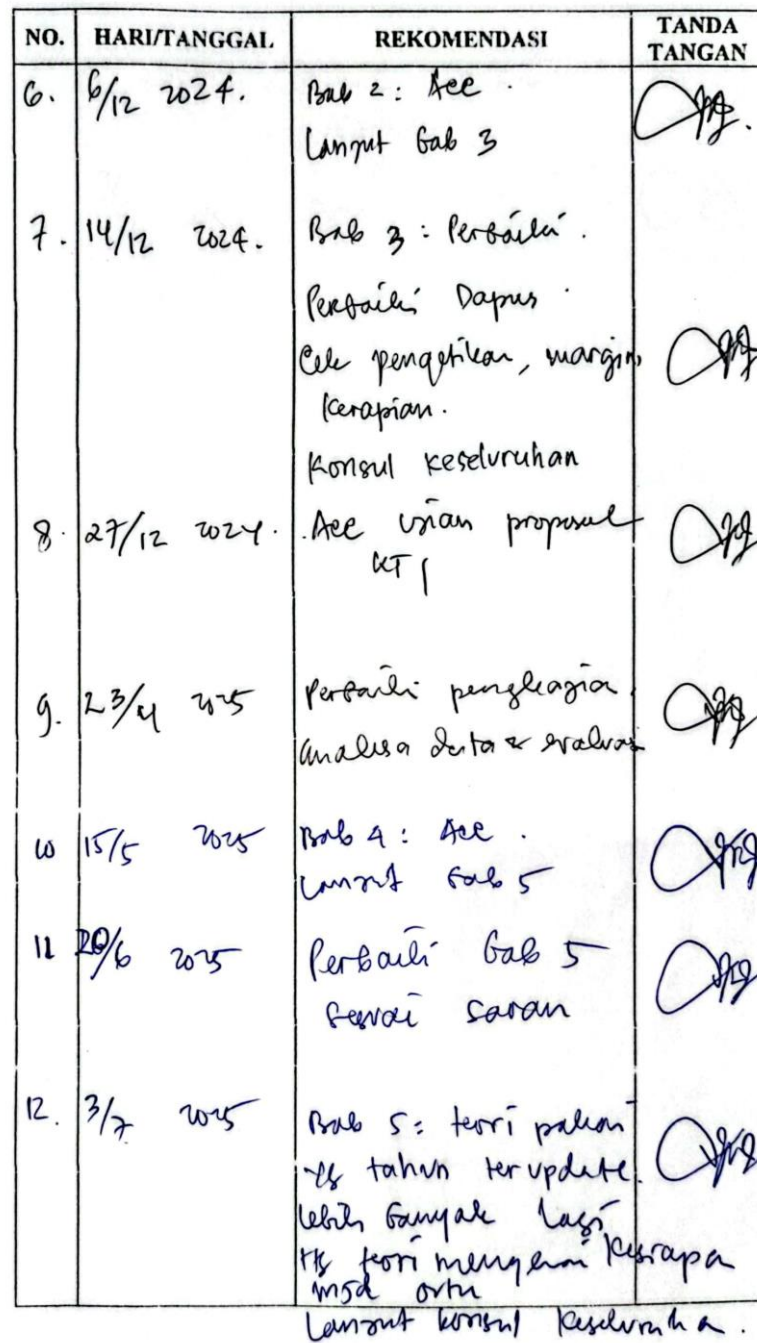 NO. HARI/TANGGAL REKOMENDASI TANDA TANGAN
6. 6/12 2024. Bab 2 : Acc .
Lanjut bab 3
7. 14/12 2024. Bab 3 : Perbaiki .
Perbaiki Dapus .
Cek pengetikan, margin,
Kerapian.
Konsul keseluruhan
8. 27/12 2024. Acc ujian proposal
KTI
9. 23/4 2025 Perbaiki pengkajian
analisa data & evaluasi
10 15/5 2025 Bab 4 : Acc .
Lanjut bab 5
11 20/6 2025 Perbaiki bab 5
sesuai saran
12. 3/7 2025 Bab 5 : teori
yg tahun terupdate.
lebih banyak lagi
ttg teori mengenai
ortu
Lanjut konsul keseluruhan.